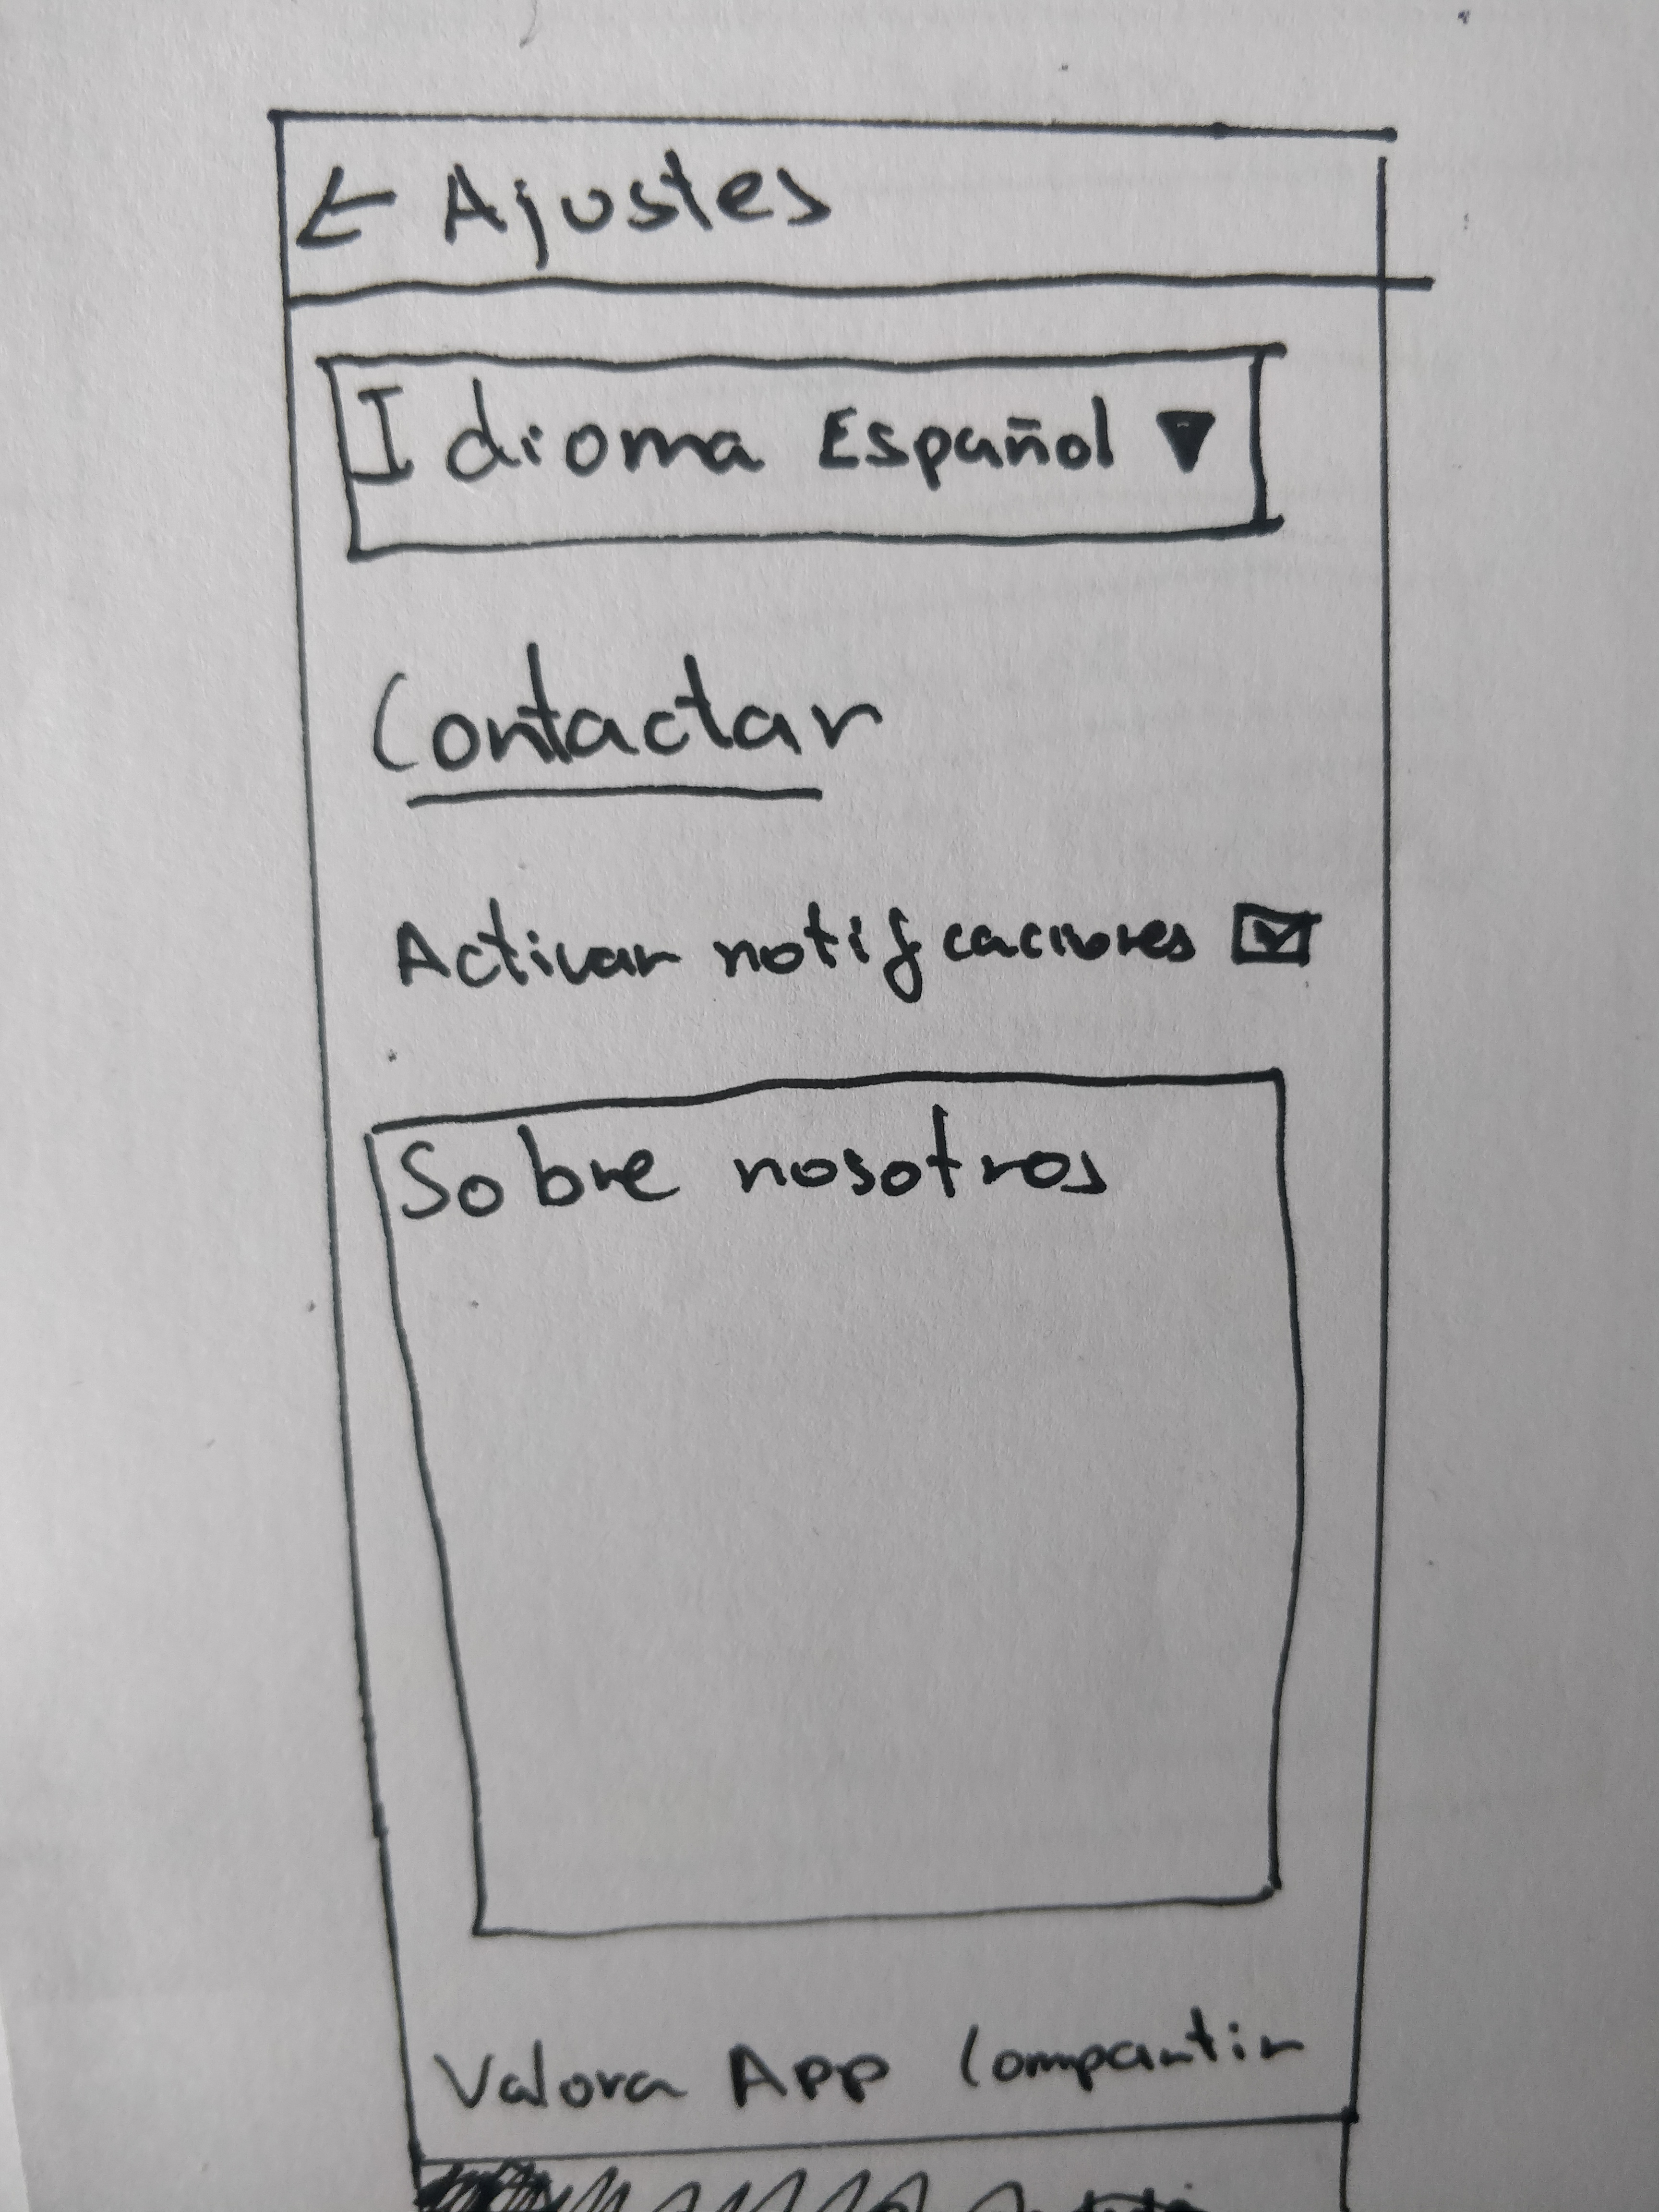 ← Ajustes
Idioma Español ▼
Contactar
Activar notificaciones ☑
Sobre nosotros
Valora App Compartir